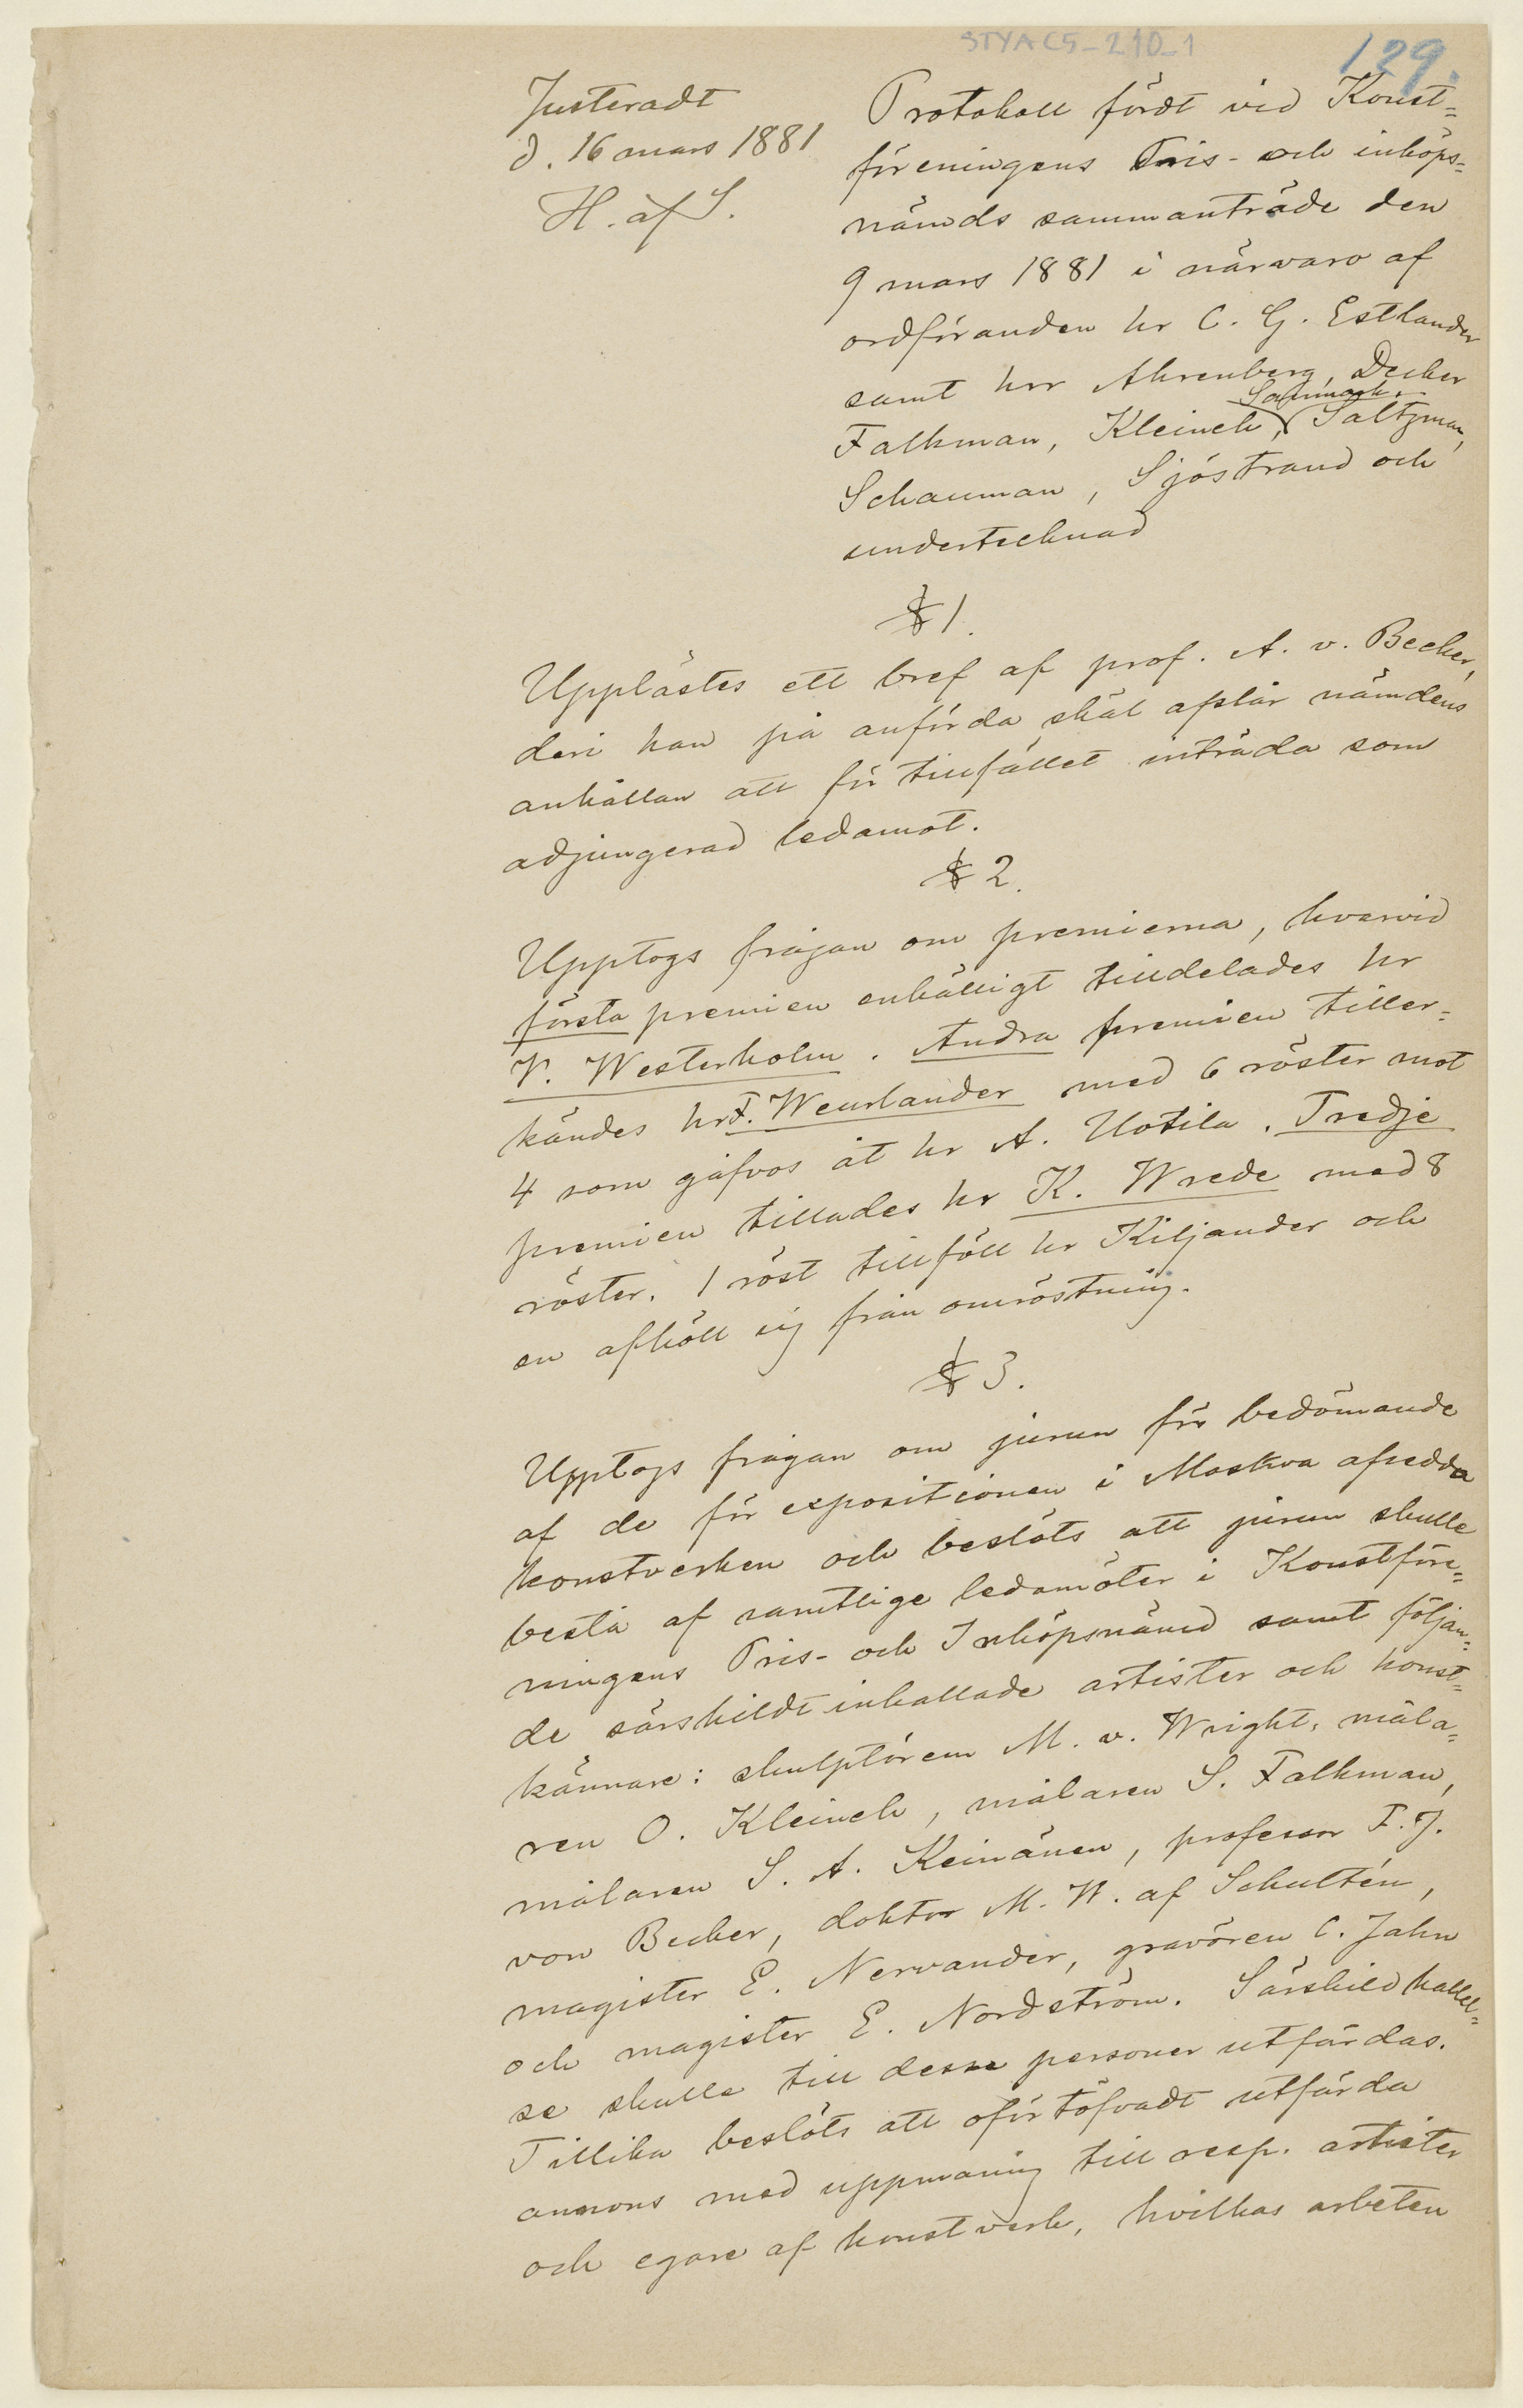 STYA C5_210_1
129.
Justeradt
d. 16 mars 1881
H. af S.
Protokoll fördt vid Konst=
föreningens Pris- och inköps=
nämds sammanträde den
9 mars 1881 i närvaro af
ordföranden hr C. G. Estlander
samt hrr Ahrenberg, Decker
Falkman, Kleineh, Salinmark, Saltzman,
Schauman, Sjöstrand och
undertecknad
§ 1.
Upplästes ett bref af prof. A. v. Becker,
deri han på anförda skäl afslår nämdens
anhållan att för tillfället inträda som
adjungerad ledamot.
§ 2.
Upptogs frågan om premierna, hvarvid
första premien enhälligt tilldelades hr
V. Westerholm. Andra premien tiller=
kändes hr F. Weurlander med 6 röster mot
4 som gåfvos åt hr A. Uotila. Tredje
premien tillades hr K. Wrede med 8
röster. 1 röst tillföll hr Kiljander och
en afhöll sig från omröstning.
§ 3.
Upptogs frågan om juryn för bedömande
af de för expositionen i Moskva afsedda
konstverken och beslöts att juryn skulle
bestå af samtlige ledamöter i Konstföre=
ningens Pris- och Inköpsnämd samt följan=
de särskildt inkallade artister och konst=
kännare: skulptören M. v. Wright, måla=
ren O. Kleineh, målaren S. Falkman,
målaren S. A. Keinänen, professor F. J.
von Becker, doktor M. W. af Schultén,
magister E. Nervander, gravören C. Jahn
och magister E. Nordström. Särskild kallel=
se skulle till desse personer utfärdas.
Tillika beslöts att oförtöfvadt utfärda
annons med uppmaning till resp. artister
och egare af konstverk, hvilkas arbeten